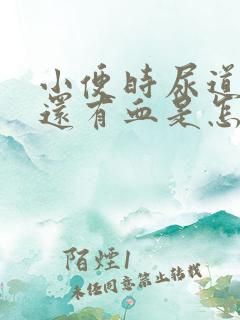 小便時尿道
還有血是怎
陌煙1
未经同意禁止转载